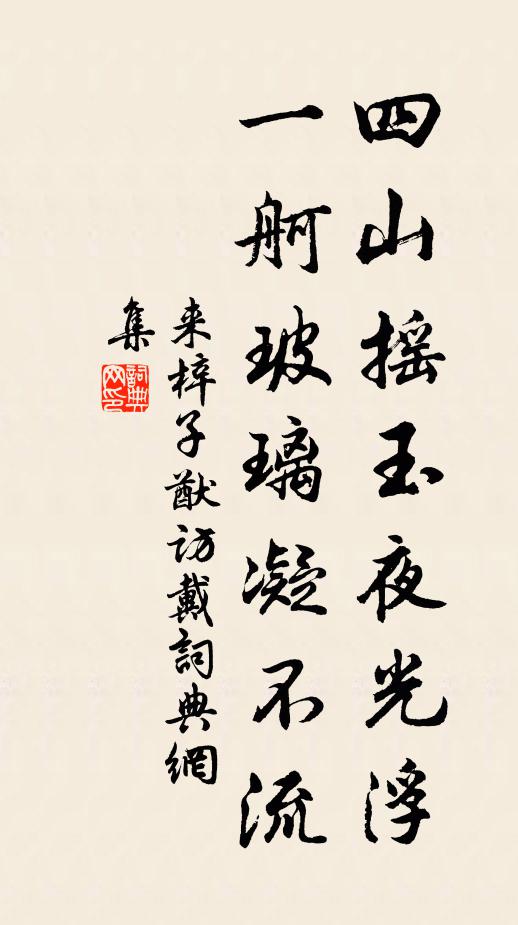 四山摇玉夜光浮
一舸玻璃凝不流
来梓子猷访戴詞典網
集
詞典网印